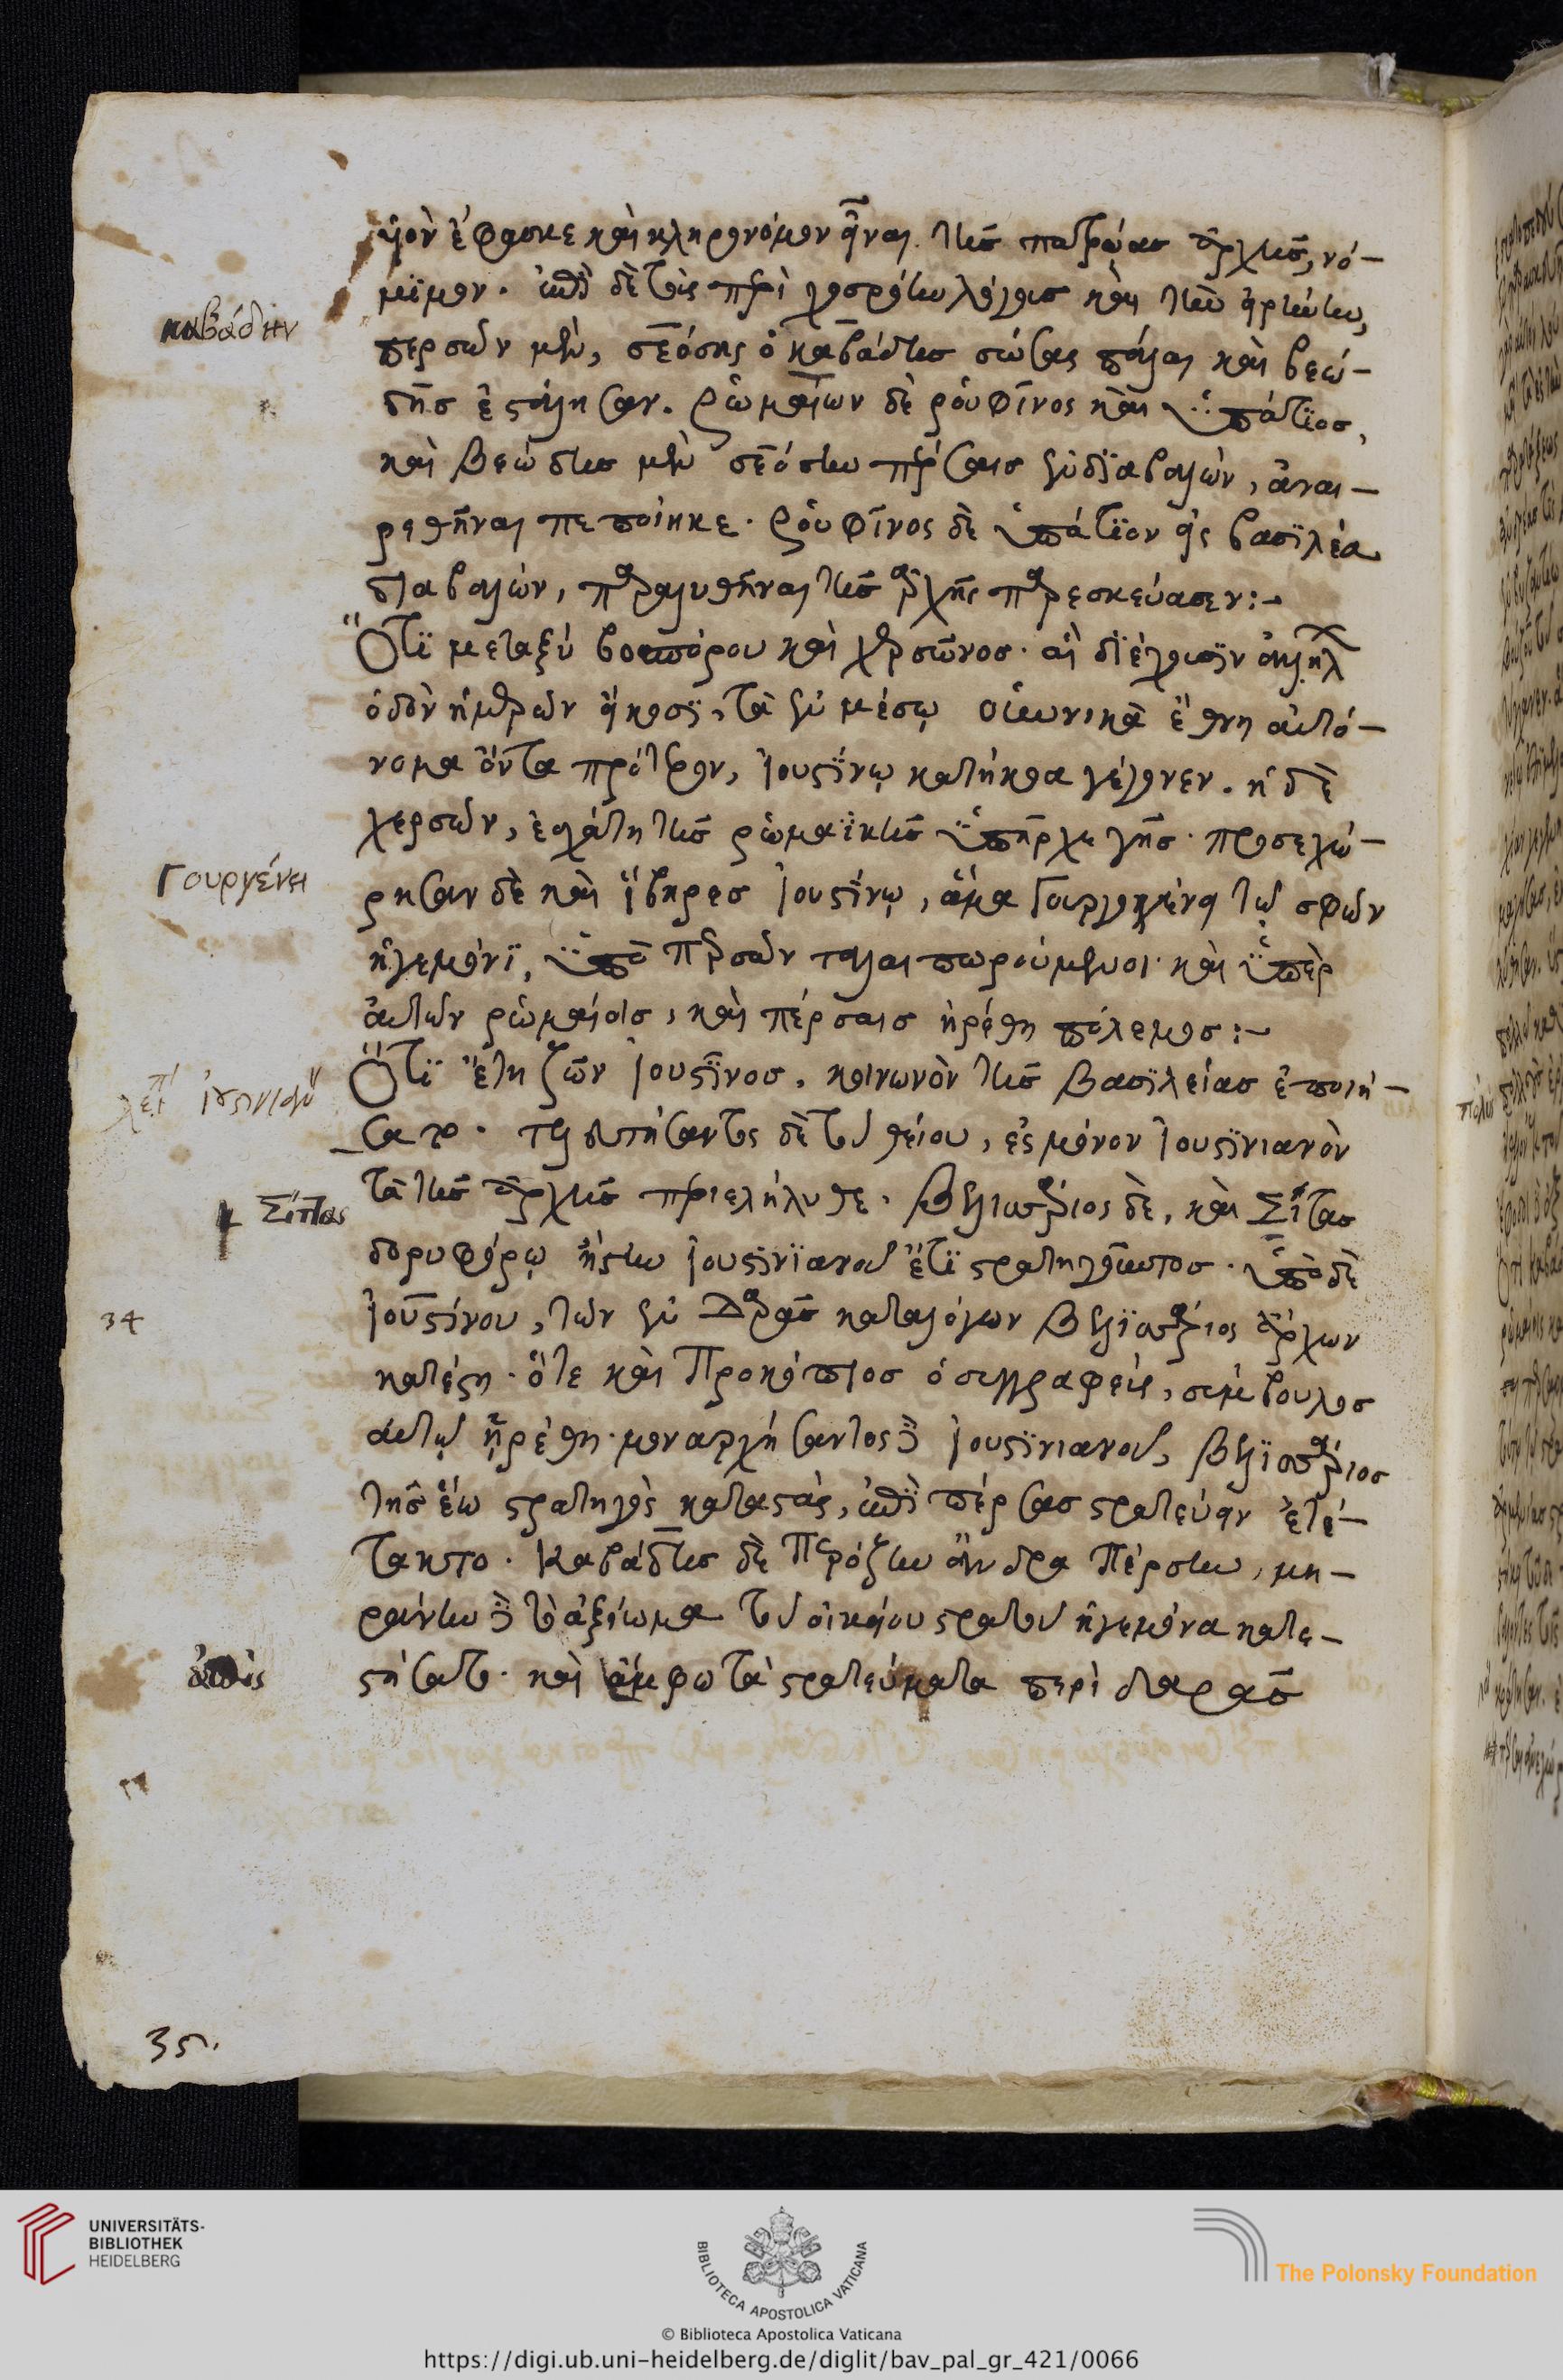 υἱὸν ἔφασκε καὶ κληρονόμον εἶναι τῆς πατρῴας ἀρχῆς, νό-
μϊμον. ἐπὶ δὲ τοῖς περὶ χοσρόην λόγοις καὶ τὴν εἰρήνην,
καβάδην
περσῶν μὲν, σεόσης ὁ καβάδης σώσας πάλαι καὶ βεώ-
δης ἐστάλησαν. ῥωμαίων δὲ ῥουφῖνος καὶ ὑπάτϊος,
καὶ βεώδης μὲν σεόσην πέρσαις ἐνδϊαβαλὼν, ἀναι-
ρεθῆναι πεποίηκε. ῥουφῖνος δὲ ὑπάτϊον εἰς βασϊλέα
διαβαλὼν, παραλυθῆναι τῆς ἀρχῆς παρεσκεύασεν:-
Ὅτϊ μεταξὺ βοσπόρου καὶ χερσῶνος. αἳ διέχουσϊν ἀλλήλ
ὁδὸν ἡμερῶν εἴκοσϊ, τὰ ἐν μέσῳ οὐννικὰ ἔθνη αὐτό-
νομα ὄντα πρότερον, ἰουστίνῳ κατήκοα γέγονεν. ἡ δὲ
χερσὼν, ἐσχάτη τῆς ῥωμαϊκῆς ὑπῆρχε γῆς. προσεχώ-
Γουργένει
ρησαν δὲ καὶ ἴβηρες ἰουστίνῳ, ἅμα Γουργένει τῷ σφῶν
ἡγεμόνϊ, ὑπὸ περσῶν ταλαιπωρούμενοι. καὶ ὑπὲρ
αὐτῶν ῥωμαίοις, καὶ πέρσαις ἠρέθη πόλεμος:-
Ὅτϊ ἔτη ζῶν ἰουστῖνος, κοινωνὸν τῆς βασϊλείας ἐποιή-
λείπει ἰουστινιανὸν
σατο. τελευτήσαντος δὲ τοῦ θείου, ἐς μόνον ἰουστϊνιανὸν
τὰ τῆς ἀρχῆς περιελήλυθε. Βελισάριος δὲ, καὶ Σίτας
Σίττας
δορυφόρω ἤστην ἰουστϊνϊανοῦ ἔτϊ στρατηγοῦντος. ὑπὸ δὲ
34
ἰουστίνου, τῶν ἐν Δάρας καταλόγων Βελϊσάριος ἄρχων
κατέστη. ὅτε καὶ Προκόπιος ὁ συγγραφεὺς, σύμβουλος
αὐτῷ ᾑρέθη. μοναρχήσαντος δὲ ἰουστϊνιανοῦ, Βελϊσάριος
τῆς ἕω στρατηγὸς καταστὰς, ἐπὶ πέρσας στρατεύειν ἐτέ-
τακτο. Καβάδης δὲ Περόζην ἄνδρα Πέρσην, μη-
ράνην δὲ τὸ ἀξίωμα τοῦ οἰκείου στρατοῦ ἡγεμόνα κατε-
στήσατο. καὶ ἄμφω τὰ στρατεύματα περὶ δαρας
35.
UNIVERSITÄTS-
BIBLIOTHEK
HEIDELBERG
BIBLIOTECA APOSTOLICA VATICANA
The Polonsky Foundation
© Biblioteca Apostolica Vaticana
https://digi.ub.uni-heidelberg.de/diglit/bav_pal_gr_421/0066